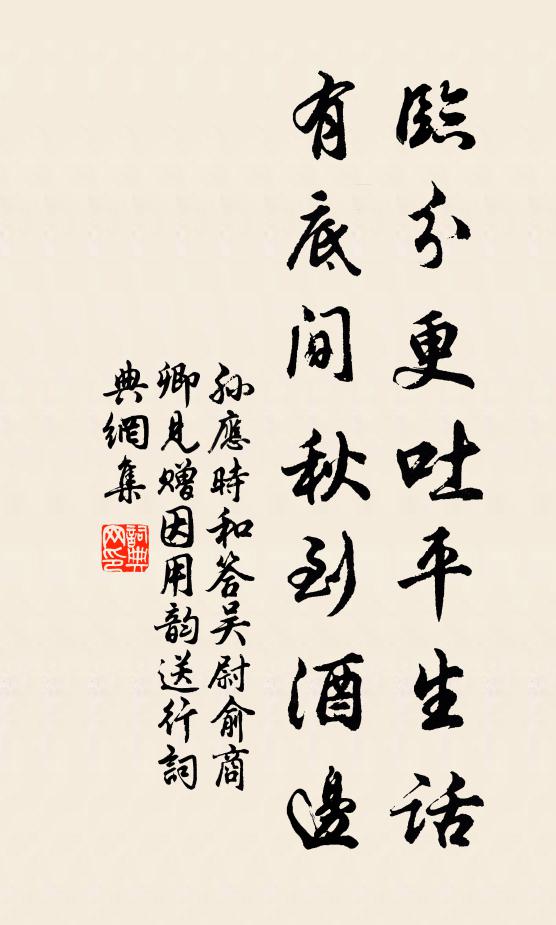 臨分更吐平生話
有底間秋到酒邊
孫應時和答吳尉俞商
卿見贈因用韵送行詞
典網集
詞典
网印